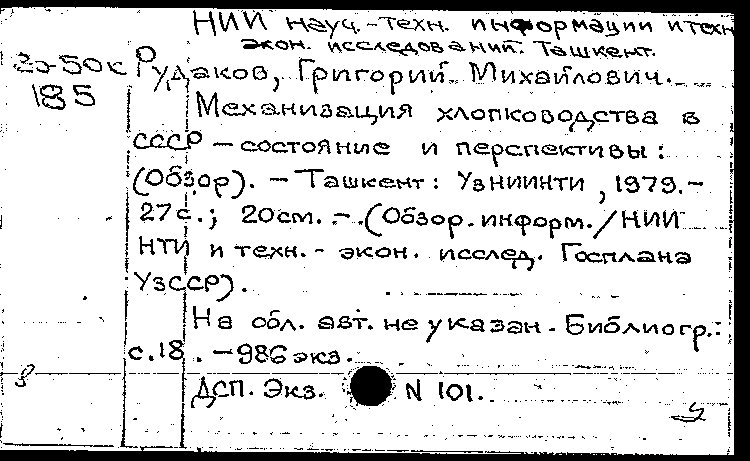 НИИ науч.-техн. информации и техн
экон. исследований. Ташкент.
Рудаков, Григорий Михайлович.
185
Механизация хлопководства в
СССР – состояние и перспективы:
(Обзор). – Ташкент: УзНИИНТИ, 1979. –
27 с.; 20 см. – (Обзор. информ. / НИИ
НТИ и техн.- экон. исслед. Госплана
УзССР).
На обл. авт. не указан. Библиогр.:
с. 18. – 986 экз.
ДСП. Экз. N 101.